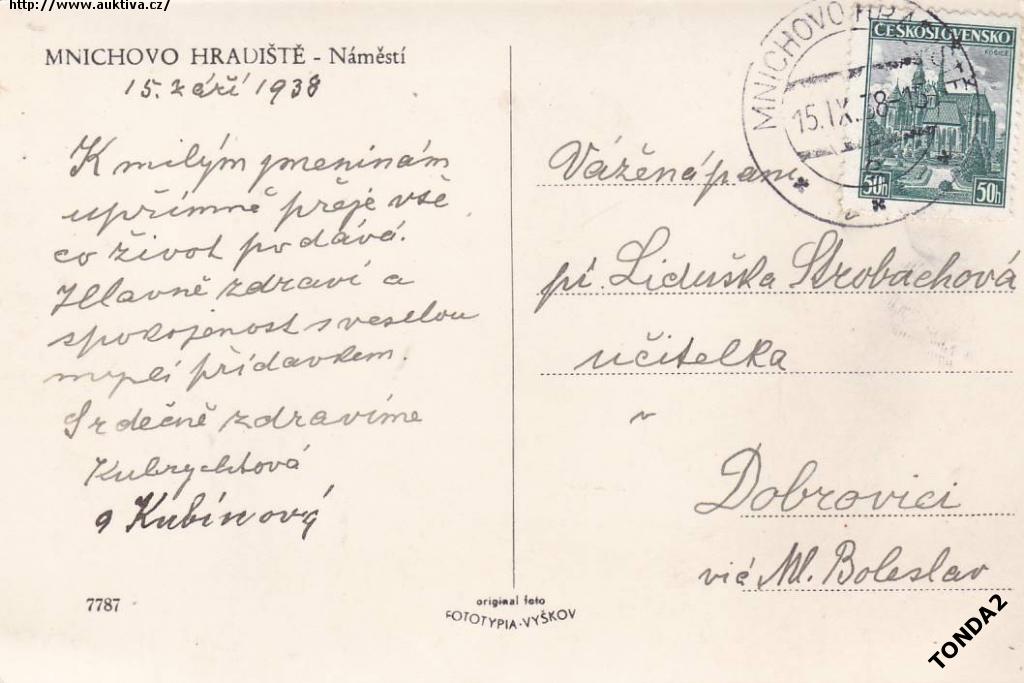 http://www.auktiva.cz/
MNICHOVO HRADIŠTĚ - Náměstí
15. září 1938
K milým jmeninám
upřímně přeje vše
co život podává.
Hlavně zdraví a
spokojenost s veselou
myslí přídavkem.
Srdečně zdravíme
Kubrychtová
a Kubínový
7787
original foto
FOTOTYPIA-VYŠKOV
MNICHOVO HRAD
15.IX.38-15
ČESKOSLOVENSKO
KOŠICE
50h 50h
Vážená paní
pí. Liduška Strobachová
učitelka
v
Dobrovici
Ml. Boleslav
TONDA2